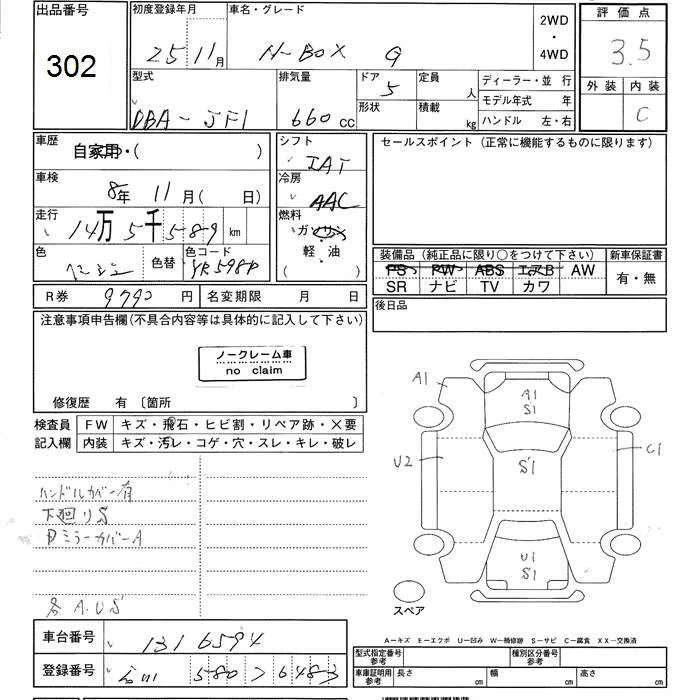 出品番号 302
初度登録年月 25 11月
車名・グレード N-BOX G
2WD・4WD
評価点 3.5
外装 内装 C
型式 DBA-JF1
排気量 660cc
ドア 5
形状
定員 人
積載 kg
ディーラー・並行
モデル年式 年
ハンドル 左・右
車歴 自家用・( )
車検 8年 11月(日)
走行 14万5千589km
色 ベージュ 色替 色コード YR598P
シフト IAT
冷房 AAC
燃料 ガソリン
軽・油
( )
セールスポイント(正常に機能するものに限ります)
装備品(純正品に限り○をつけて下さい) 新車保証書
PS PW ABS エアB AW 有・無
SR ナビ TV カワ
R券 9790円 名変期限 月 日
後日品
注意事項申告欄(不具合内容等は具体的に記入して下さい)
ノークレーム車
no claim
修復歴 有 〔箇所 〕
検査員 FW キズ・飛石・ヒビ割・リペア跡・×要
記入欄 内装 キズ・汚レ・コゲ・穴・スレ・キレ・破レ
ハンドルカバー有
下廻りS
ミラーカバーA
各A.U.S
A1
A1
S1
U2
S1
C1
U1
S1
スペア
A-キズ E-エクボ U-凹み W-補修跡 S-サビ C-腐食 XX-交換済
車台番号 1316594
登録番号 580 6483
型式指定番号 参考 種別区分番号 参考
車庫証明用 参考 長さ cm 幅 cm 高さ cm